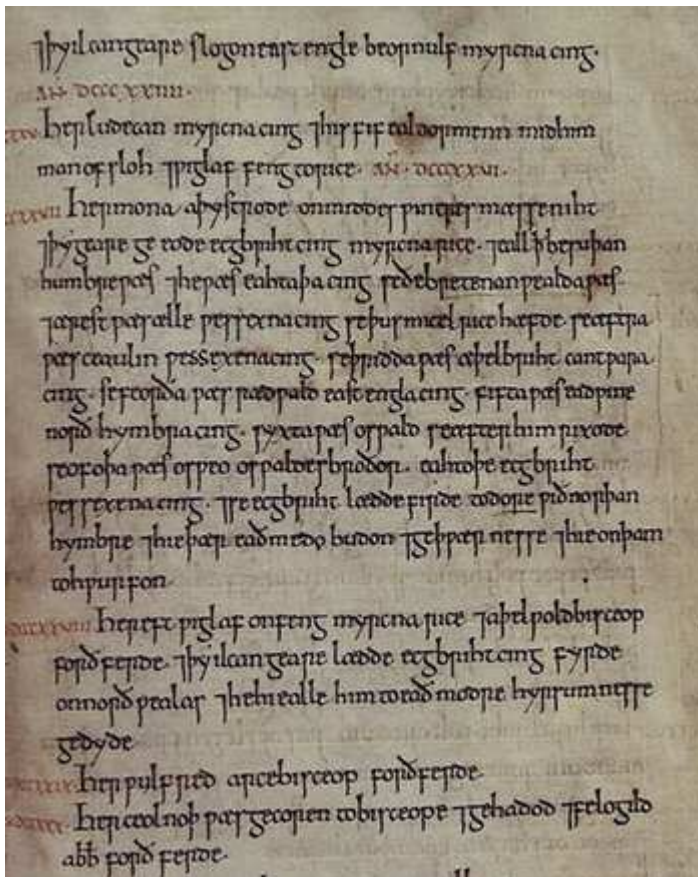 ⁊ þy ilcan geare slogon east engle beornulf myrcna cing.
AN̄ DCCCXXIIII.
Her ludecan myrcna cing ⁊ his fif ealdormenn mid him
man ofsloh ⁊ ƿiglaf feng to rice. AN̄. DCCCXXVI.
Her mona aþystrode on middes ƿintres mæsse niht
⁊ þy geare ge eode ecgbriht cing myrcna rice. ⁊ eall ꝥ be suþan
humbre ƿæs ⁊ he ƿæs eahtaþa cing se ðe bretenanƿealda ƿæs
⁊ ærest ƿæs ælle ƿessexena cing se þus micel rice hæfde. se æftra
ƿæs ceaulin ƿessexena cing. se þridda ƿæs æþelbriht cantƿara
cing. se feorða ƿæs rædƿald east engla cing. fifta ƿæs eadƿine
norð hymbra cing. syxta ƿæs osƿald se æfter him rixode.
seofoþa ƿæs osƿeo osƿaldes broðor. eahtoþe ecgbriht
ƿessexena cing. ⁊ se ecgbriht lædde firde to dore ƿið norþan
hymbre ⁊ hie þær eaðmedo budon ⁊ geþƿærnesse ⁊ hie on þam
tohƿurfon.
Her eft ƿiglaf onfeng myrcna rice ⁊ aþelƿold bisceop
forð ferde. ⁊ þy ilcan geare lædde ecgbriht cing fyrde
on norð ƿealas ⁊ he hi ealle him to eað modre hyrsumnesse
gedyde.
Her ƿulfred arcebisceop forð ferde.
Her ceolnoþ ƿæs gecoren to bisceope ⁊ gehadod ⁊ felogild
abb̄ forð ferde.